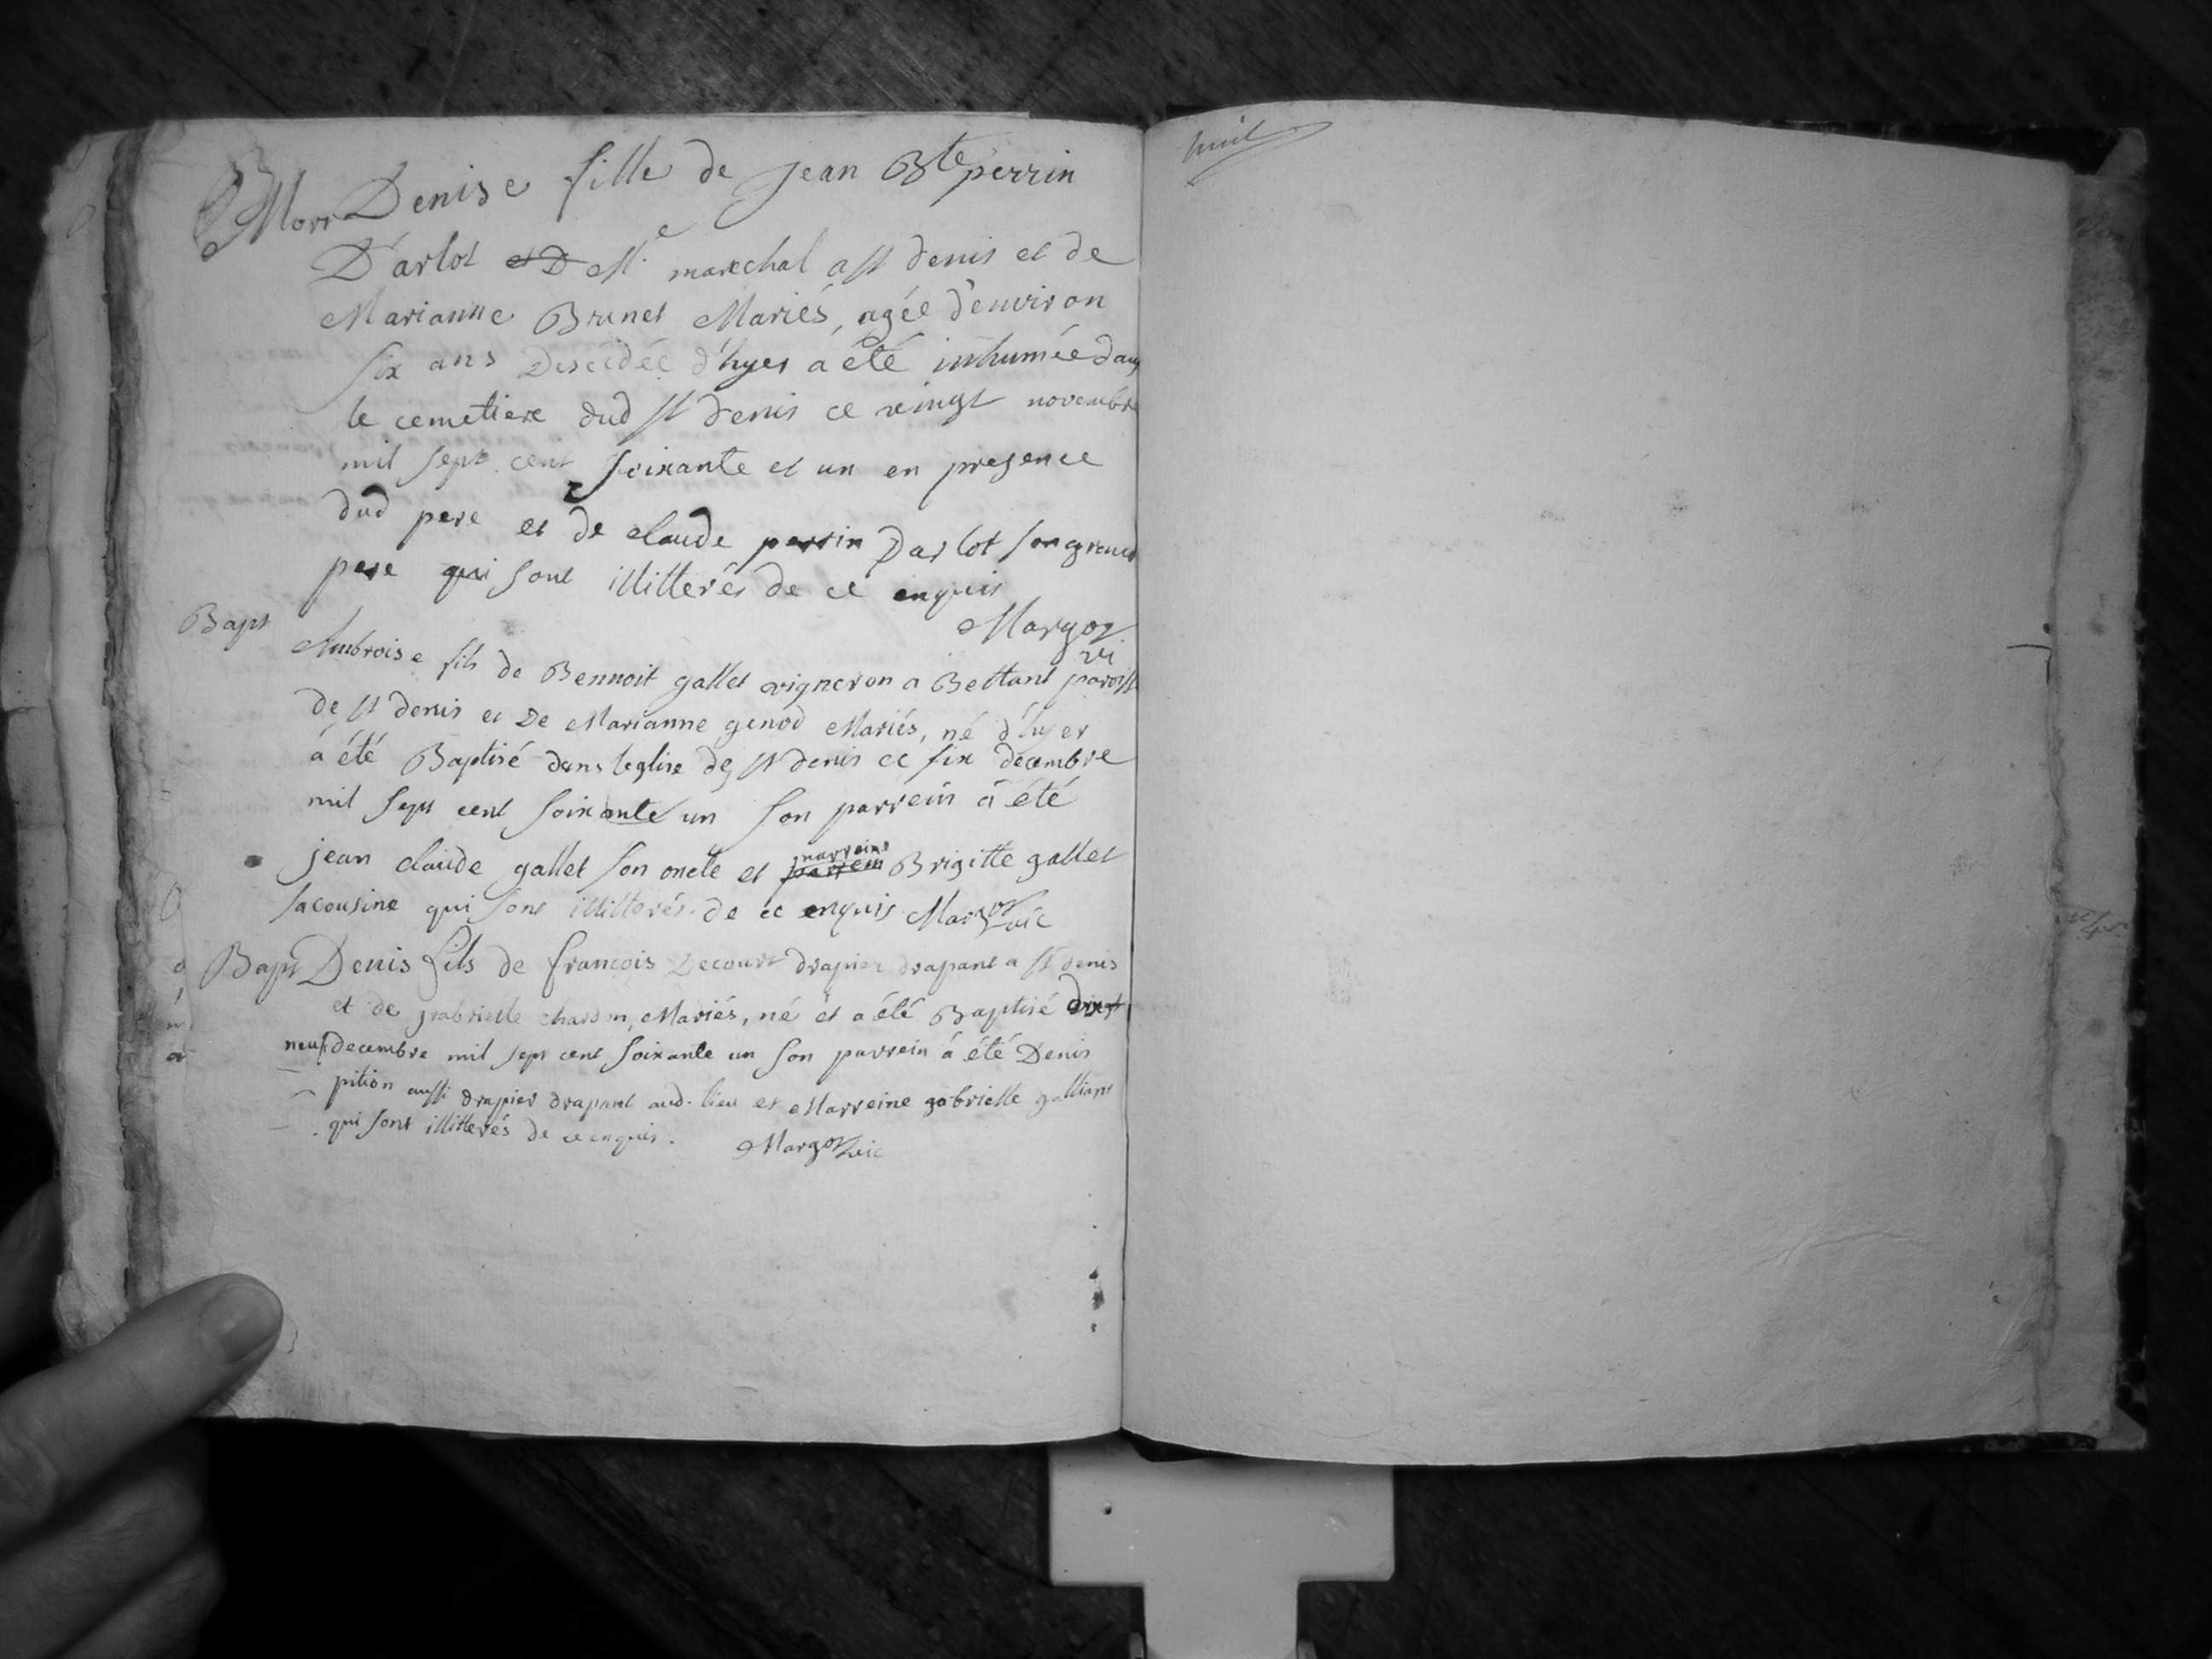 Mort Denise fille de Jean Bte perrin
D'arlot et D Me marechal a St denis et de
Marianne Brunet Mariés, agée d'environ
six ans Desédée d'hyer a été inhumée dans
le cemetiere dud St denis ce vingt novembre
mil sept cent soixante et un en presence
dud pere et de claude perrin Darlot son grand
pere qui sont illitterés de ce enquis
Margoz
vi
Baps Ambroise fils de Bennoit gallet vigneron a Bettant paroisse
de St denis et De Marianne genod Mariés, né d'hyer
a été Baptisé dans leglise de St denis ce six decembre
mil sept cent soixante un son parrein a été
jean claude gallet son oncle et parrein marreine Brigitte gallet
sa cousine qui sont illitterés de ce enquis Margoz vic
Bapt Denis fils de françois Decourt drapier drapant a St denis
et de gabrielle chardon, Mariés, né et a été Baptisé dix
neuf decembre mil sept cent soixante un son parrein a été Denis
pition aussi drapier drapant aud. lieu et Marreine gabrielle galliant
qui sont illitterés de ce enquis. Margoz vic
huit